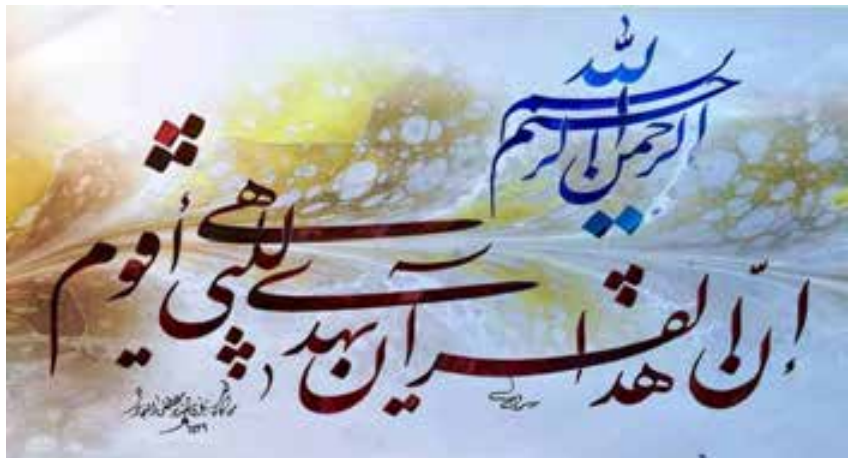 بسم الله الرحمن الرحیم
إنّ هذا القرآن یهدی للتی هی أقوم